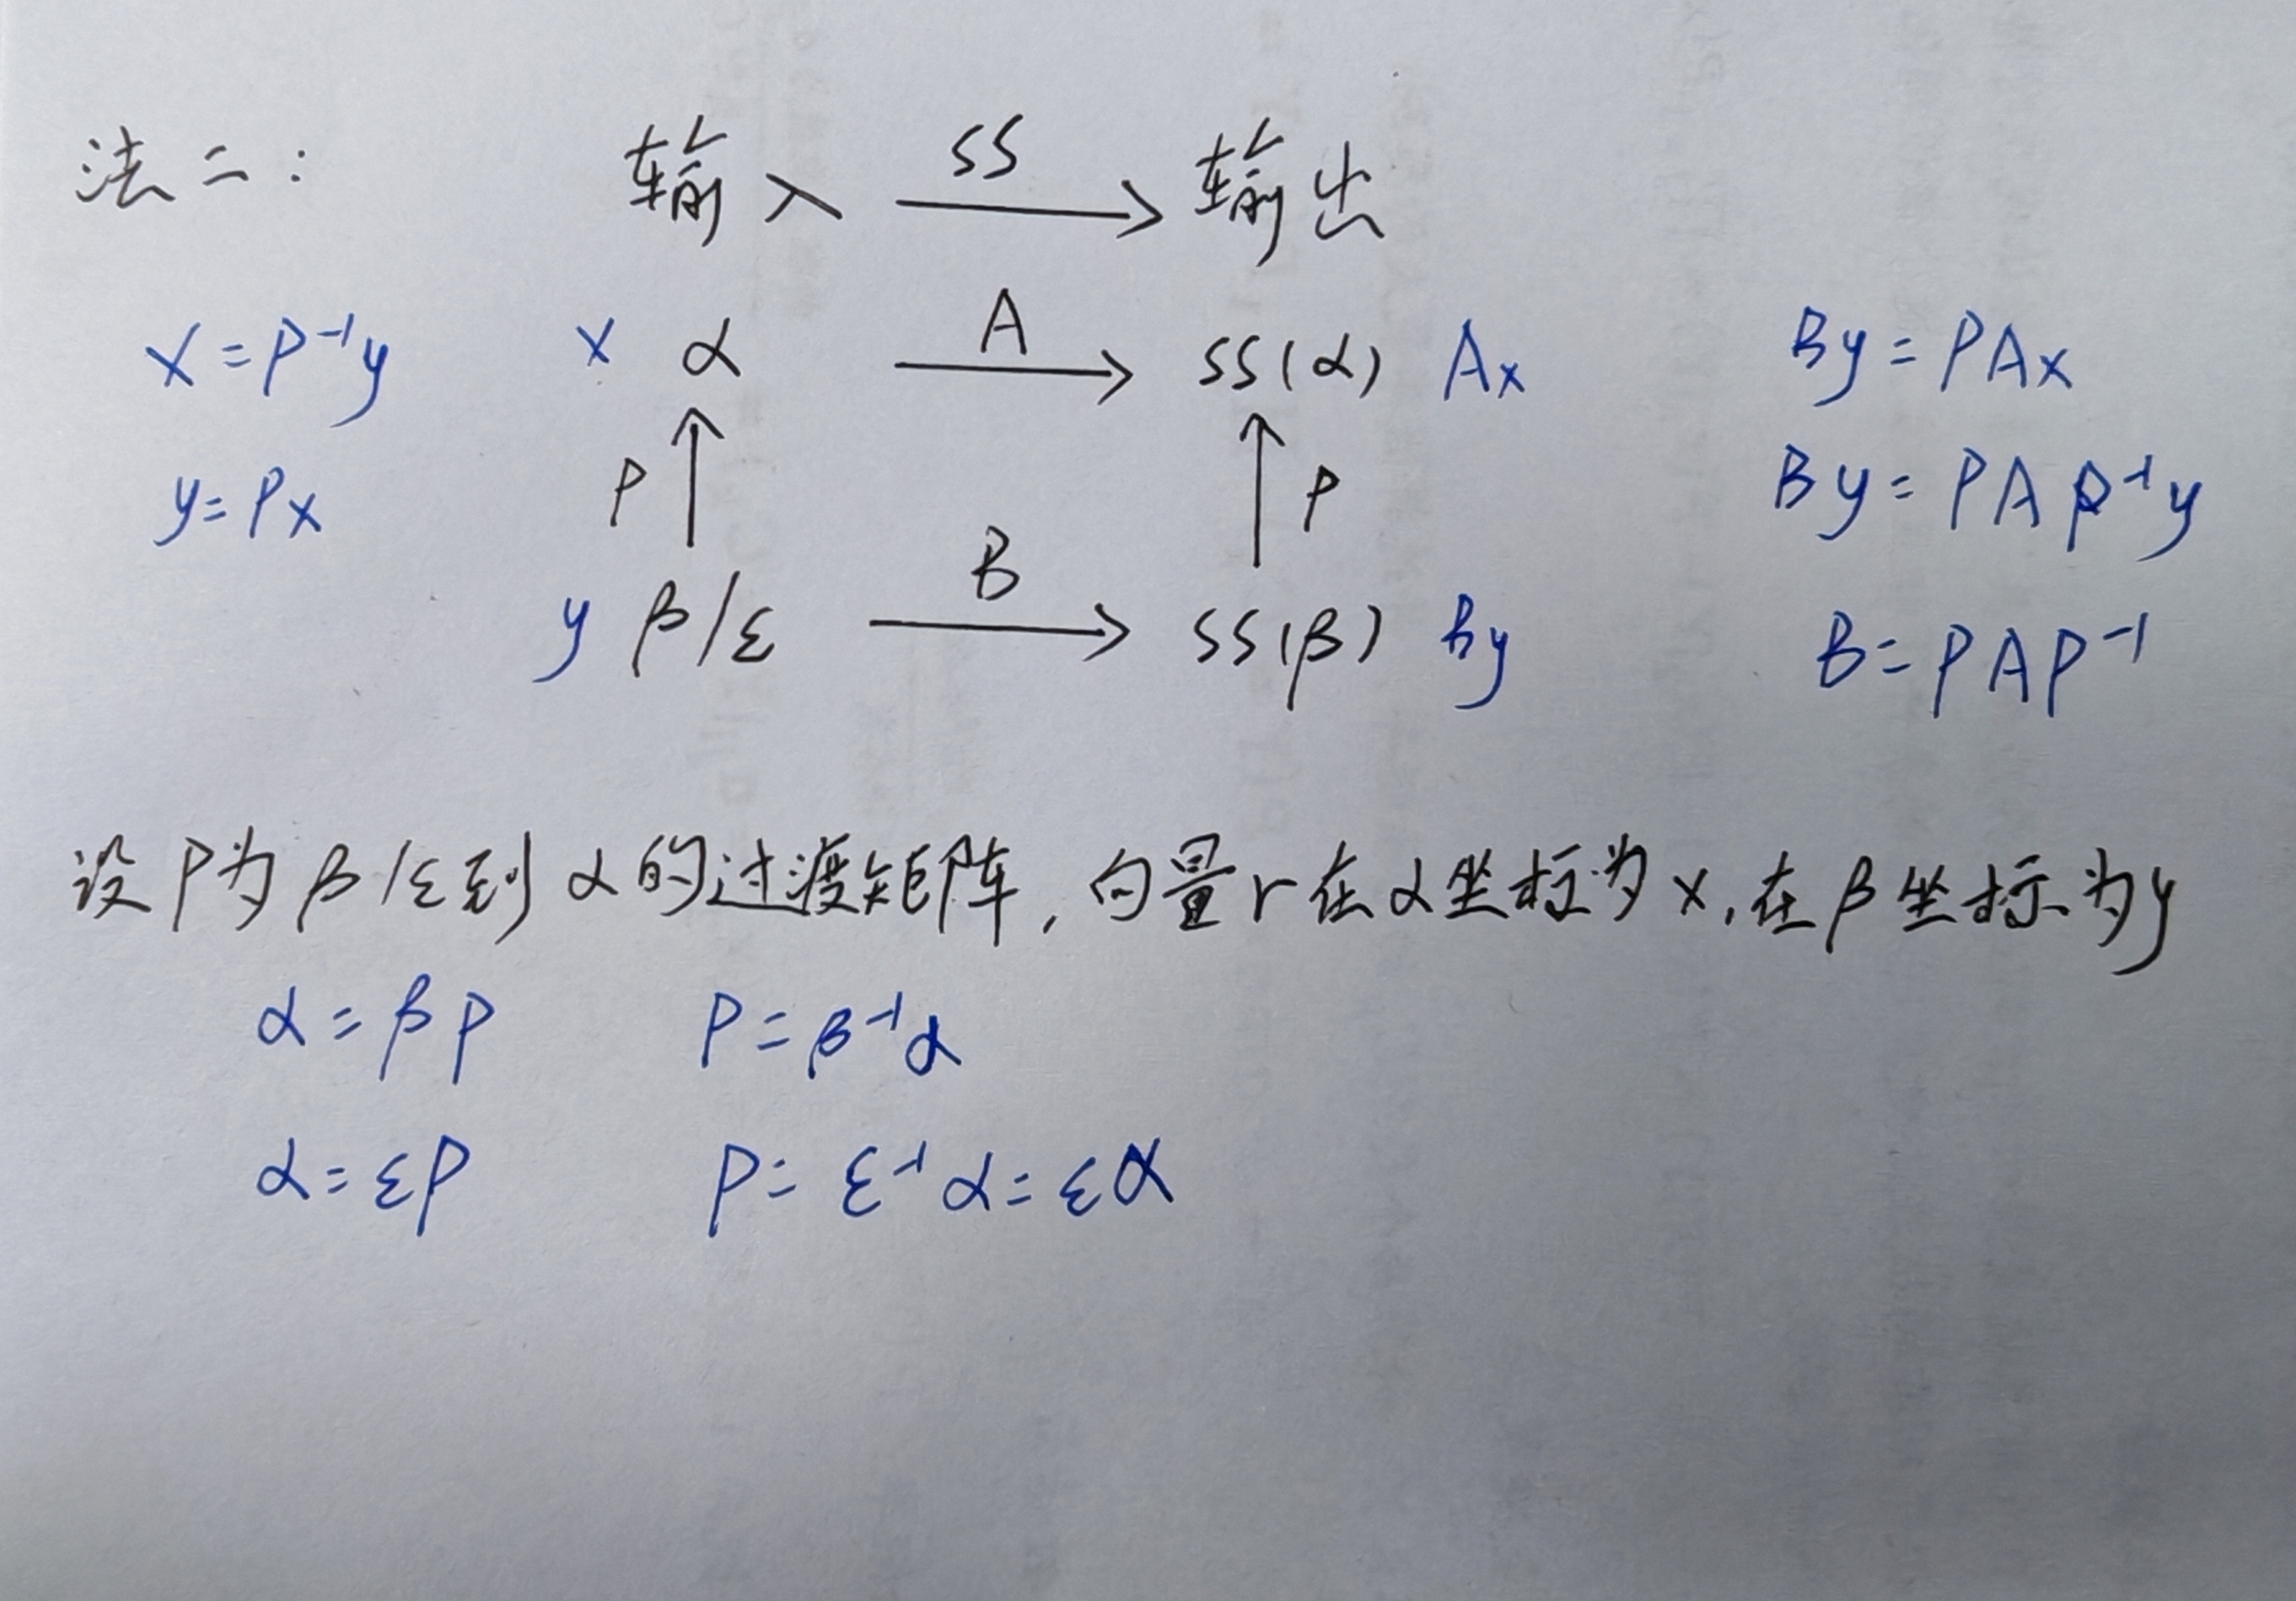 法二: 输入 ss 输出
A
x=P⁻¹y x α ss(α) Ax By=PAx
y=Px P P By=PAP⁻¹y
B
y β/ε ss(β) By B=PAP⁻¹
设P为β/ε到α的过渡矩阵,向量r在α坐标为x,在β坐标为y
α=βP P=β⁻¹α
α=εP P=ε⁻¹α=εα